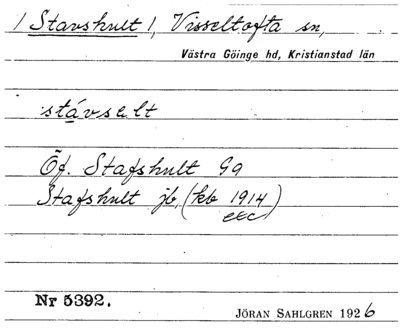 / Stavshult /, Visseltofta sn,
Västra Göinge hd, Kristianstad län
stávsalt
Öf. Stafshult Ga
Stafshult jb, (kb 1914)
etc
Nr 5392.
JÖRAN SAHLGREN 1926